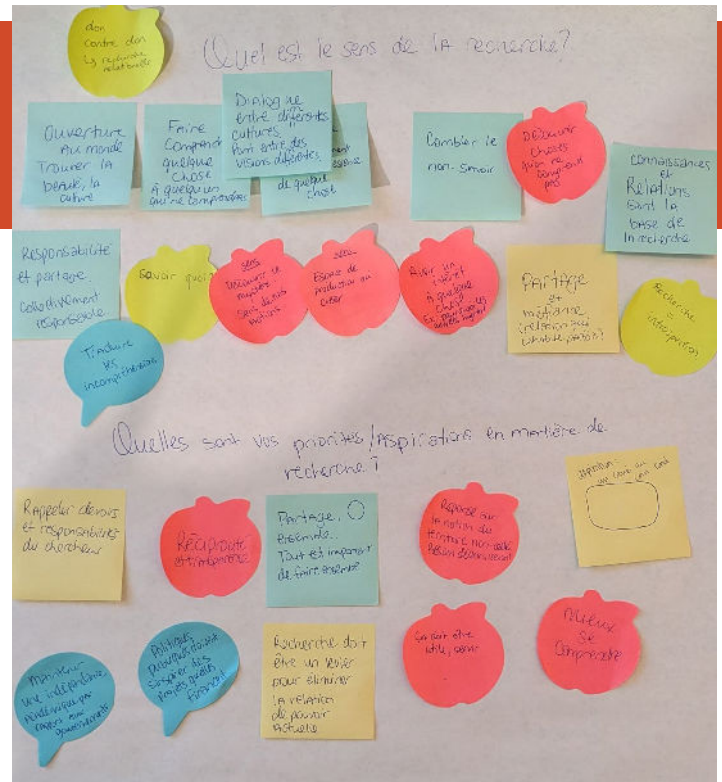 don
contre don
Quel est le sens de la recherche?
Ouverture
Au monde
Trouver la
beauté, la
culture
Faire
Comprendre
quelque
chose
à quelqu'un
qui ne comprend pas
Dialogue
entre différentes
cultures.
Pont entre des
visions différentes
de quelque
chose
Combler le
non-savoir
Découvrir
choses
qu'on ne
comprend
pas
Connaissances
et
Relations
sont la
base de
la recherche
Responsabilité
et partage.
Collectivement
responsable
Savoir quoi
sens
Découvrir le
mystère
Sens de nos
actions
sens
Espace de
production ou
créer
Avoir un
intérêt
à quelque
chose
Partage
et
Recherche
=
anticipation
Traduire
les
incompréhensions
Quelles sont vos priorités/aspirations en matière de
recherche?
Rappeler devoirs
et responsabilités
du chercheur
Réciprocité
et
Partage,
ensemble.
Tout est important
de faire ensemble
Réponse sur
la notion de
territoire non-cédé
Maintenir
une indépendance
académique par
rapport aux
gouvernements
Politiques
publiques doivent
s'inspirer des
projets qu'elles
financent
Recherche doit
être un levier
pour éliminer
la relation
de pouvoir
actuelle
ça doit être
utile, servir
Mieux
se
Comprendre